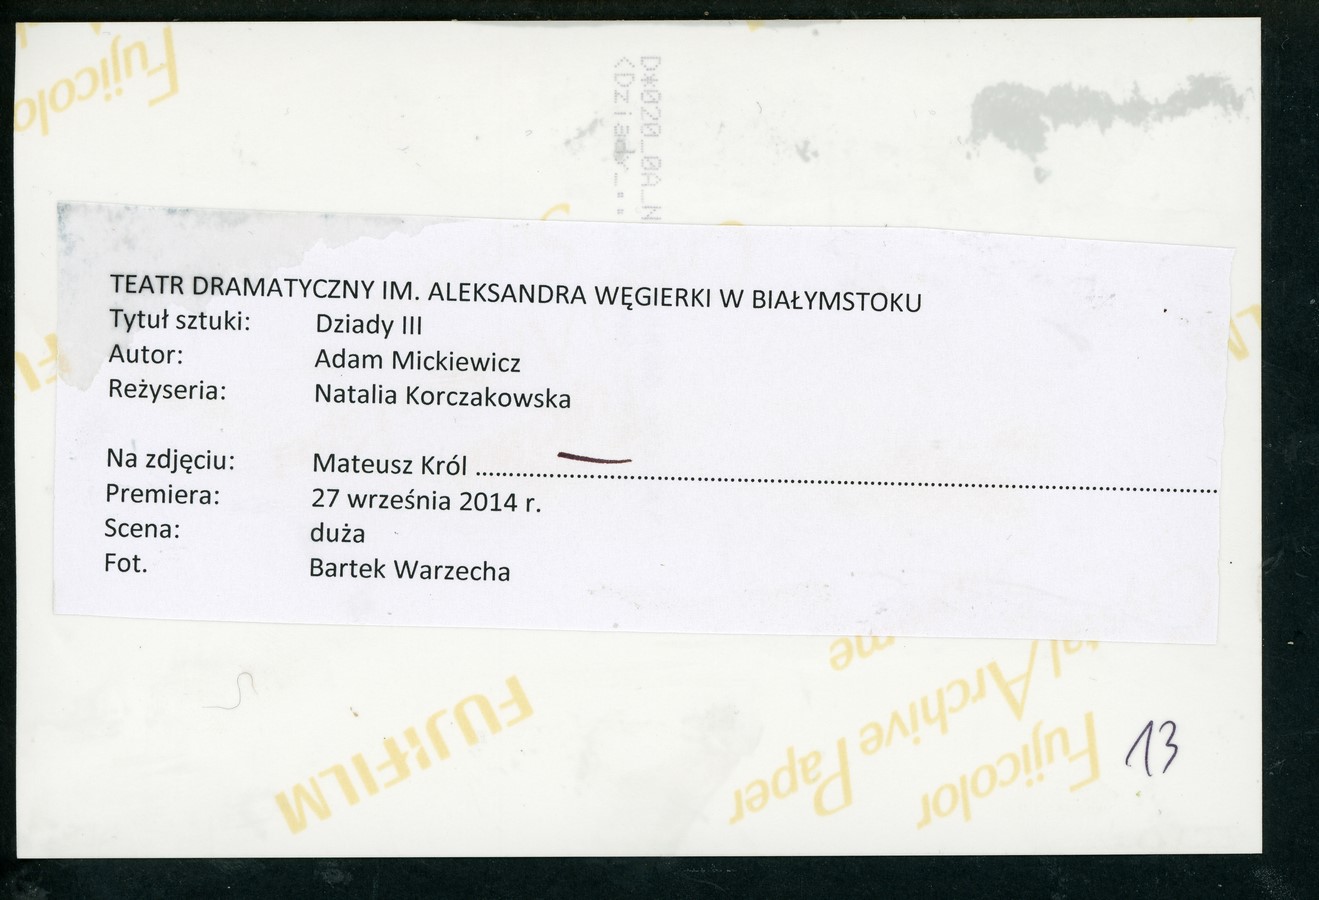 Fujicolo
D*020_0A_N
<Dziady_
TEATR DRAMATYCZNY IM. ALEKSANDRA WĘGIERKI W BIAŁYMSTOKU
Tytuł sztuki: Dziady III
Autor: Adam Mickiewicz
Reżyseria: Natalia Korczakowska
Na zdjęciu: Mateusz Król ................................................................
Premiera: 27 września 2014 r.
Scena: duża
Fot. Bartek Warzecha
FUJIFILM
Fujicolor
tal Archive Paper
me
13